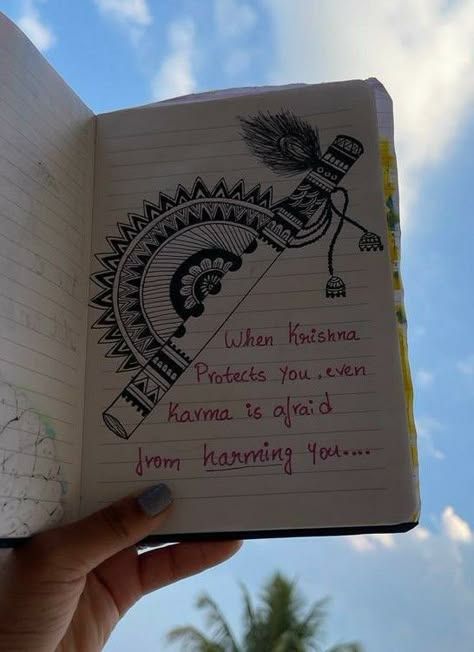 When Krishna
Protects you, even
Karma is afraid
from harming you....